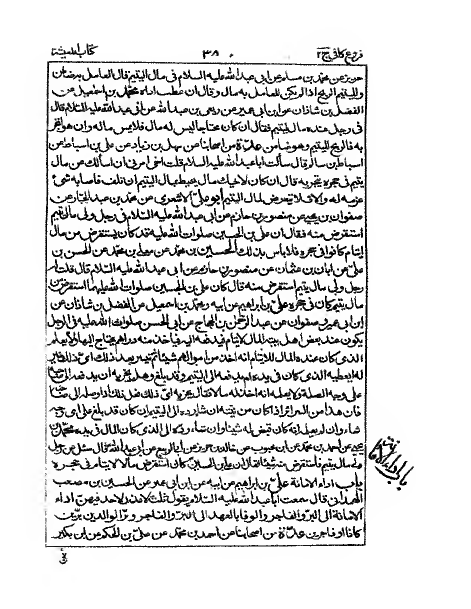 فروع كافى ج٢ ٣٨ كتاب المعيشة
حريز عن محمد بن مسلم عن ابى عبد الله عليه السلام فى مال اليتيم قال العامل به ضامن
ولليتيم الربح اذا لم يكن للعامل به مال وقال ان عطب اداه محمد بن اسمعيل عن
الفضل بن شاذان عن ابن ابى عمير عن ربعى بن عبد الله عن ابى عبد الله عليه السلام قال
فى رجل عنده مال اليتيم فقال ان كان محتاجا ليس له مال فلا يمس ماله وان هو اتجر
به فالربح لليتيم وهو ضامن عدة من اصحابنا عن سهل بن زياد عن على بن اسباط عن
اسباط بن سالم قال سألت ابا عبد الله عليه السلام قلت اخى امرنى ان اسألك عن مال
يتيم فى حجره يتجر به قال ان كان لاخيك مال يحيط بمال اليتيم ان تلف فاصابه شئ
غرمه له والا فلا يتعرض لمال اليتيم ابو على الاشعرى عن محمد بن عبد الجبار عن
صفوان بن يحيى عن منصور بن حازم عن ابى عبد الله عليه السلام فى رجل ولى مال يتيم
أستقرض منه فقال ان على بن الحسين صلوات الله عليه قد كان يستقرض من مال
ايتام كانوا فى حجره فلا باس بذلك الحسين بن محمد عن معلى بن محمد عن الحسن بن
على عن ابان بن عثمان عن منصور بن حازم عن ابى عبد الله عليه السلام قال قلت له
رجل ولى مال يتيم استقرض منه قال كان على بن الحسين صلوات الله عليهما استقرض من
مال يتيم كان فى حجره على بن ابراهيم عن ابيه ومحمد بن اسمعيل عن الفضل بن شاذان عن
ابن ابى عمير عن صفوان عن عبد الرحمن بن الحجاج عن ابى الحسن صلوات الله عليه فى الرجل
يكون عند بعض اهل بيته المال لايتام فيدفعه اليه فياخذ منه دراهم يحتاج اليها ولا يعلم
الذى كان عنده المال للايتام انه اخذ من اموالهم شيئا ثم تيسر بعد ذلك اى ذلك خير
له ايعطيه الذى كان فى يده ام يدفعه الى اليتيم وقد بلغ وهل يجزيه ان يدفعه الى صاحبه
على وجه الصلة ولا يعلمه انه اخذ له مالا فقال يجزيه اى ذلك فعل اذا اوصله الى صاحبه
فان هذا من السرائر اذا كان من نيته ان شاء رده الى اليتيم ان كان قد بلغ على اى وجه
شاء وان لم يعلمه انه كان قبض له شيئا وان شاء رده الى الذى كان المال فى يده محمد بن
يحيى عن احمد بن محمد عن ابن محبوب عن خالد بن جرير عن ابى الربيع عن ابى عبد الله قال سئل عن رجل
ولى مال يتيم فاستقرض منه شيئا فقال ان على بن الحسين كان استقرض مالا لايتام فى حجره
باب اداء الامانة على بن ابراهيم عن ابيه عن ابن ابى عمير عن الحسين بن مصعب
الهمدانى قال سمعت ابا عبد الله عليه السلام يقول ثلث لا عذر لاحد فيهن اداء
الامانة الى البر والفاجر والوفا بالعهد الى البر والفاجر وبر الوالدين برين
كانا او فاجرين عدة من اصحابنا عن احمد بن محمد عن على بن الحكم عن ابن بكير